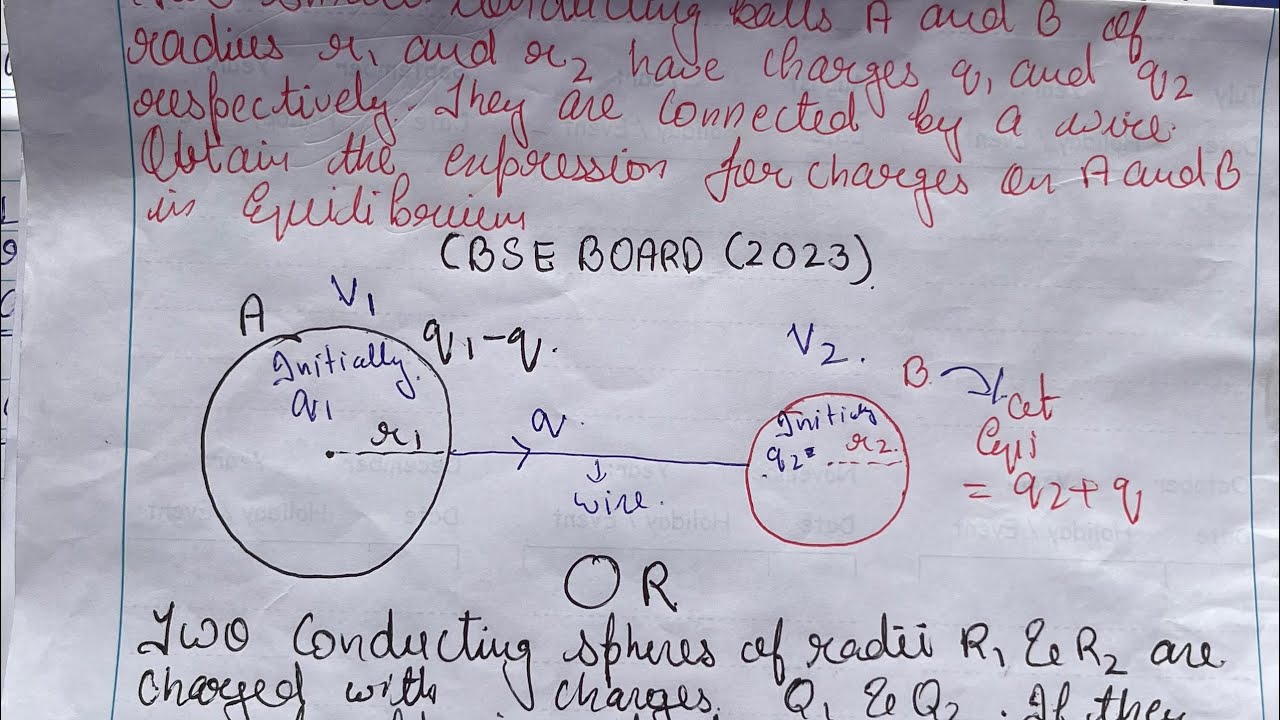 conducting balls A and B of
radius r1 and r2 have charges q1 and q2
respectively. They are connected by a wire.
Obtain the expression for charges on A and B
in Equidibrium
CBSE BOARD (2023)
A
V1
q1-q.
Initially
q1
r1
q
wire.
V2.
B
Initially
q2
r2
at
Equi
= q2+q
OR
Two conducting spheres of radii R1 & R2 are
charged with charges Q1 & Q2. If they